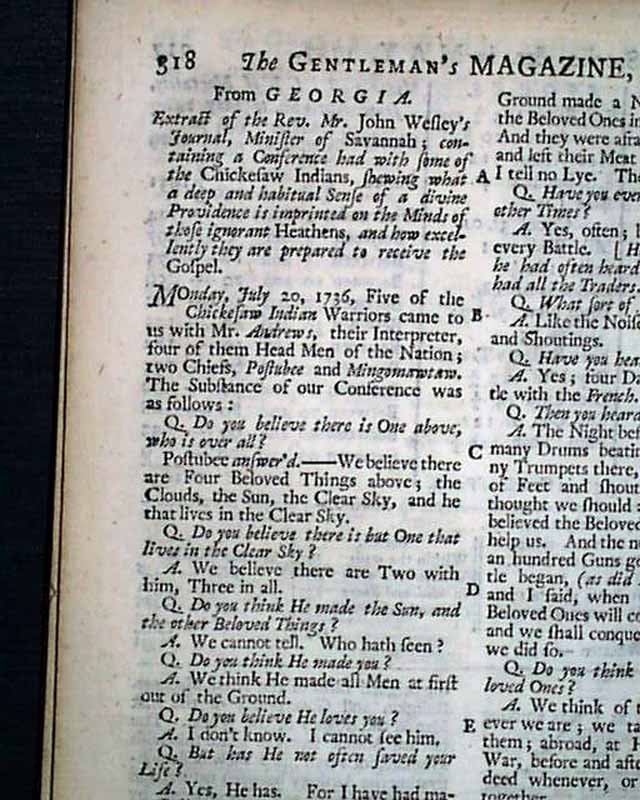 318 The GENTLEMAN's MAGAZINE,
From GEORGIA.
Extract of the Rev. Mr. John Weſley's
Journal, Miniſter of Savannah; con-
taining a Conference had with ſome of
the Chickeſaw Indians, ſhewing what
a deep and habitual Senſe of a divine
Providence is imprinted on the Minds of
thoſe ignorant Heathens, and how excel-
lently they are prepared to receive the
Goſpel.
MOnday, July 20, 1736, Five of the
Chickeſaw Indian Warriors came to
us with Mr. Andrews, their Interpreter,
four of them Head Men of the Nation;
two Chiefs, Poſtubee and Mingomawtaw.
The Subſtance of our Conference was
as follows:
Q. Do you believe there is One above,
who is over all?
Poſtubee anſwer'd.——We believe there
are Four Beloved Things above; the
Clouds, the Sun, the Clear Sky, and he
that lives in the Clear Sky.
Q. Do you believe there is but One that
lives in the Clear Sky?
A. We believe there are Two with
him, Three in all.
Q. Do you think He made the Sun, and
the other Beloved Things?
A. We cannot tell. Who hath ſeen?
Q. Do you think He made you?
A. We think He made all Men at firſt
out of the Ground.
Q. Do you believe He loves you?
A. I don't know. I cannot ſee him.
Q. But has He not often ſaved your
Life?
A. Yes, He has. For I have had ma-
A
B
C
D
E
Ground made a N
the Beloved Ones in
And they were afra
and left their Meat
I tell no Lye. The
Q. Have you ever
other Times?
A. Yes, often; b
every Battle. [H
he had often heard
had all the Traders.
Q. What ſort of
A. Like the Noiſe
and Shoutings.
Q. Have you hea
A. Yes; four Da
tle with the French.
Q. Then you heard
A. The Night bef
many Drums beatin
ny Trumpets there,
of Feet and ſhout
thought we ſhould
believed the Beloved
help us. And the n
an hundred Guns go
tle began, (as did
and I ſaid, when
Beloved Ones will co
and we ſhall conque
we did ſo.
Q. Do you think
loved Ones?
A. We think of t
ever we are; we ta
them; abroad, at H
War, before and afte
deed whenever, or
together